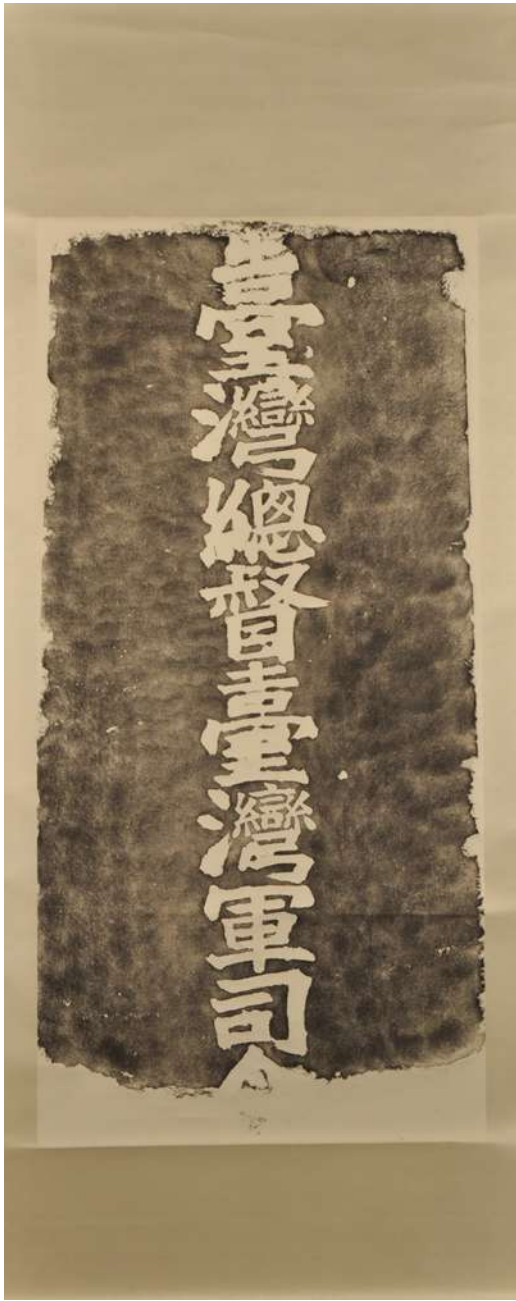 臺灣總督臺灣軍司